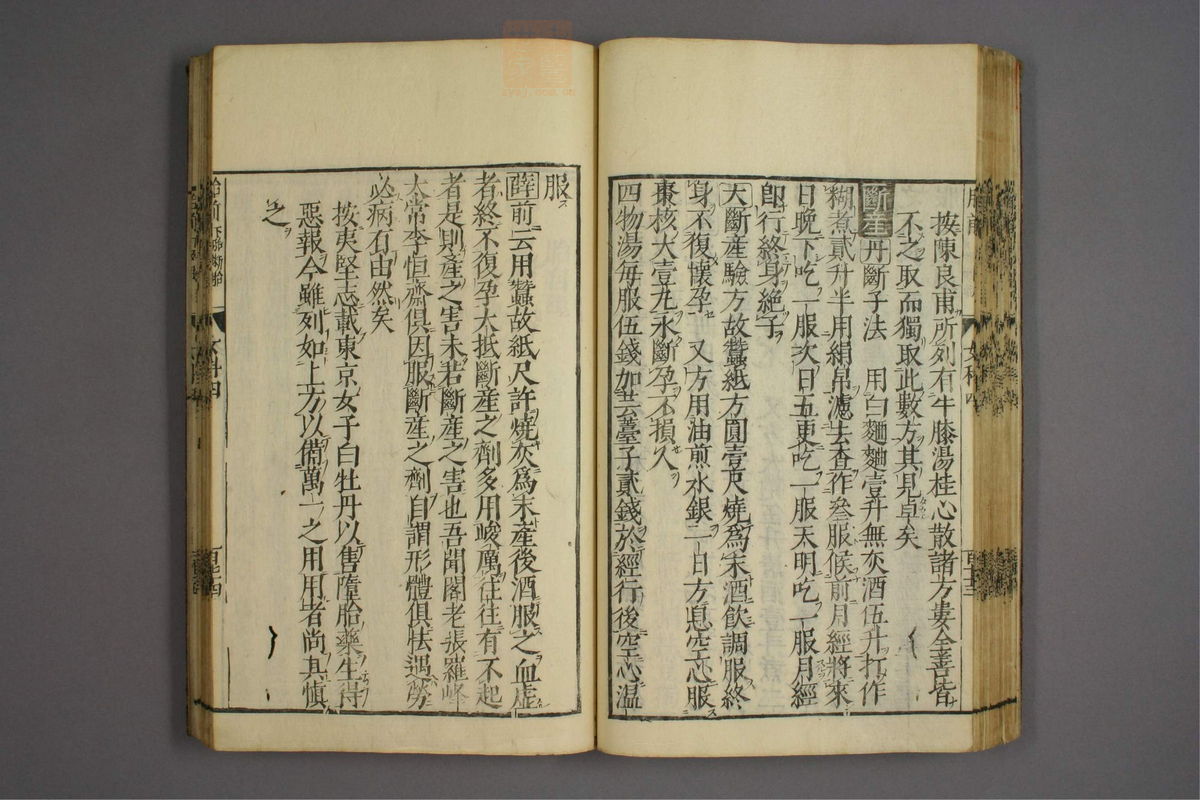 按陳良甫所列有牛膝湯桂心散諸方婁全善皆
不之取而獨取此數方其見卓矣
斷産丹斷子法　用白麵麯壹升無灰酒伍升打作
糊煮貳升半用絹帛濾去查作叄服候前月經將來
日晚下吃一服次日五更吃一服天明吃一服月經
卽行終身絕子
大斷産驗方故蠶紙方圓壹尺燒爲末酒飮調服終
身不復懷孕　又方用油煎水銀一日方息空心服
棗核大壹丸永斷孕不損人
四物湯每服伍錢加芸薹子貳錢於經行後空心溫
服
薛前云用蠶故紙尺許燒灰爲末産後酒服之血虛
者終不復孕大抵斷産之劑多用峻厲往往有不起
者是則産之害未若斷産之害也吾聞閣老張羅峰
太常李恒齋俱因服斷産之劑自謂形體俱怯遇勞
必病有由然矣
按夷堅志載東京女子白牡丹以售隋胎藥生得
惡報今雖列如上方以備萬一之用用者尚其愼
之
胎前
女科四